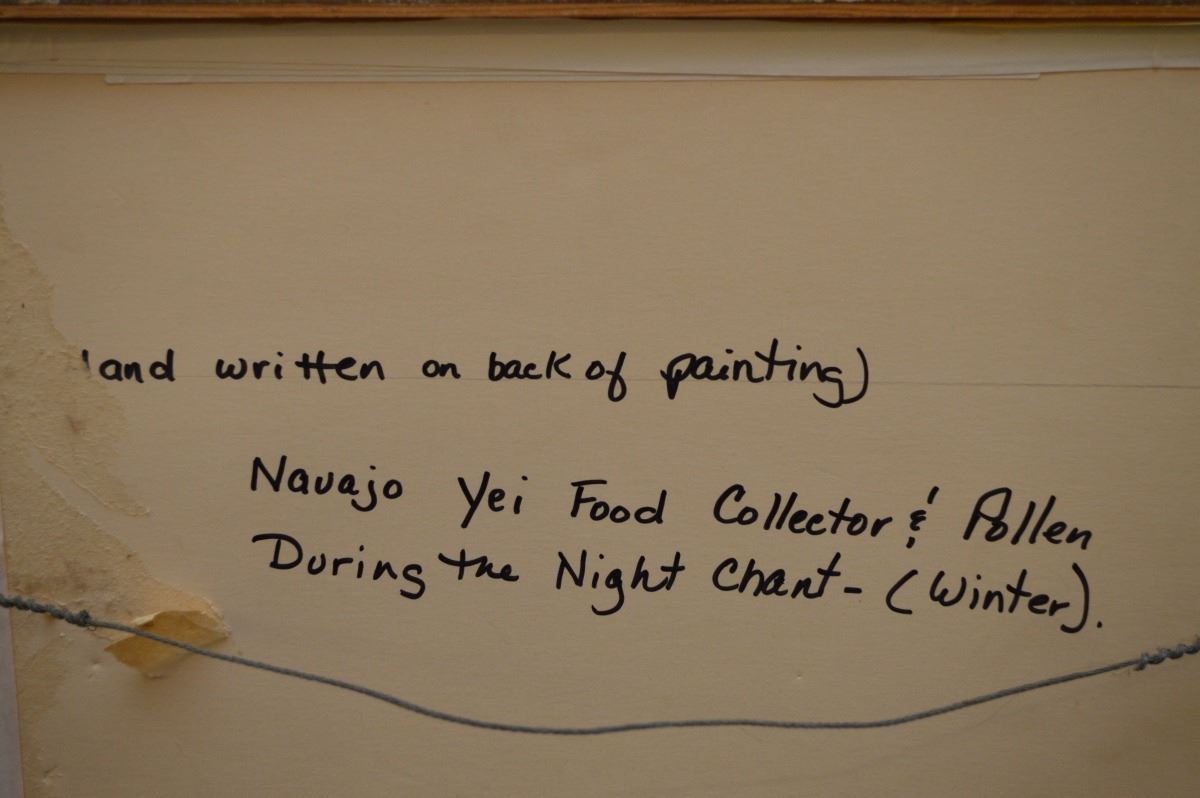 and written on back of painting)
Navajo Yei Food Collector & Pollen
During the Night Chant - (Winter).